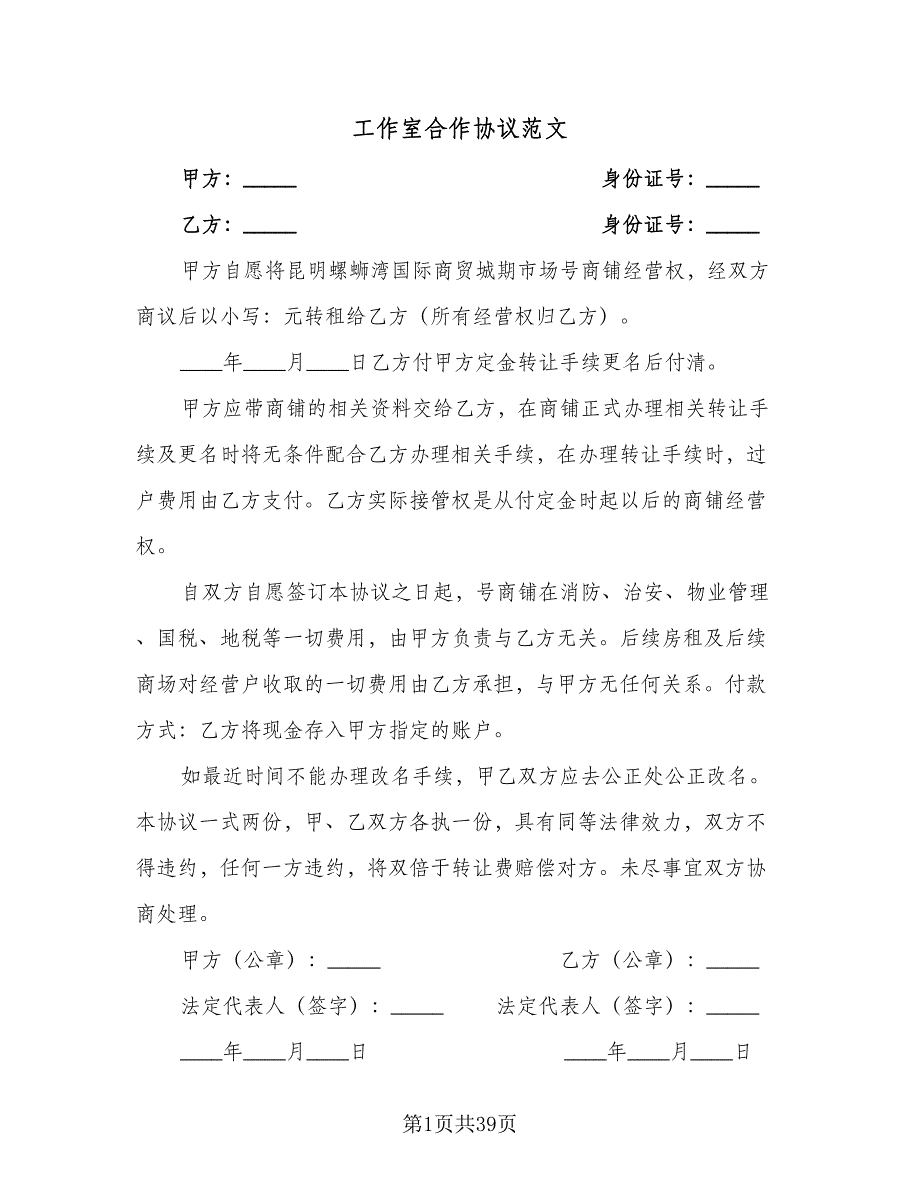 工作室合作协议范文
甲方：_____ 身份证号：_____
乙方：_____ 身份证号：_____
甲方自愿将昆明螺蛳湾国际商贸城期市场号商铺经营权，经双方
商议后以小写：元转租给乙方（所有经营权归乙方）。
____年____月____日乙方付甲方定金转让手续更名后付清。
甲方应带商铺的相关资料交给乙方，在商铺正式办理相关转让手
续及更名时将无条件配合乙方办理相关手续，在办理转让手续时，过
户费用由乙方支付。乙方实际接管权是从付定金时起以后的商铺经营
权。
自双方自愿签订本协议之日起，号商铺在消防、治安、物业管理
、国税、地税等一切费用，由甲方负责与乙方无关。后续房租及后续
商场对经营户收取的一切费用由乙方承担，与甲方无任何关系。付款
方式：乙方将现金存入甲方指定的账户。
如最近时间不能办理改名手续，甲乙双方应去公正处公正改名。
本协议一式两份，甲、乙双方各执一份，具有同等法律效力，双方不
得违约，任何一方违约，将双倍于转让费赔偿对方。未尽事宜双方协
商处理。
甲方（公章）：_____ 乙方（公章）：_____
法定代表人（签字）：_____ 法定代表人（签字）：_____
____年____月____日 ____年____月____日
第1页共39页